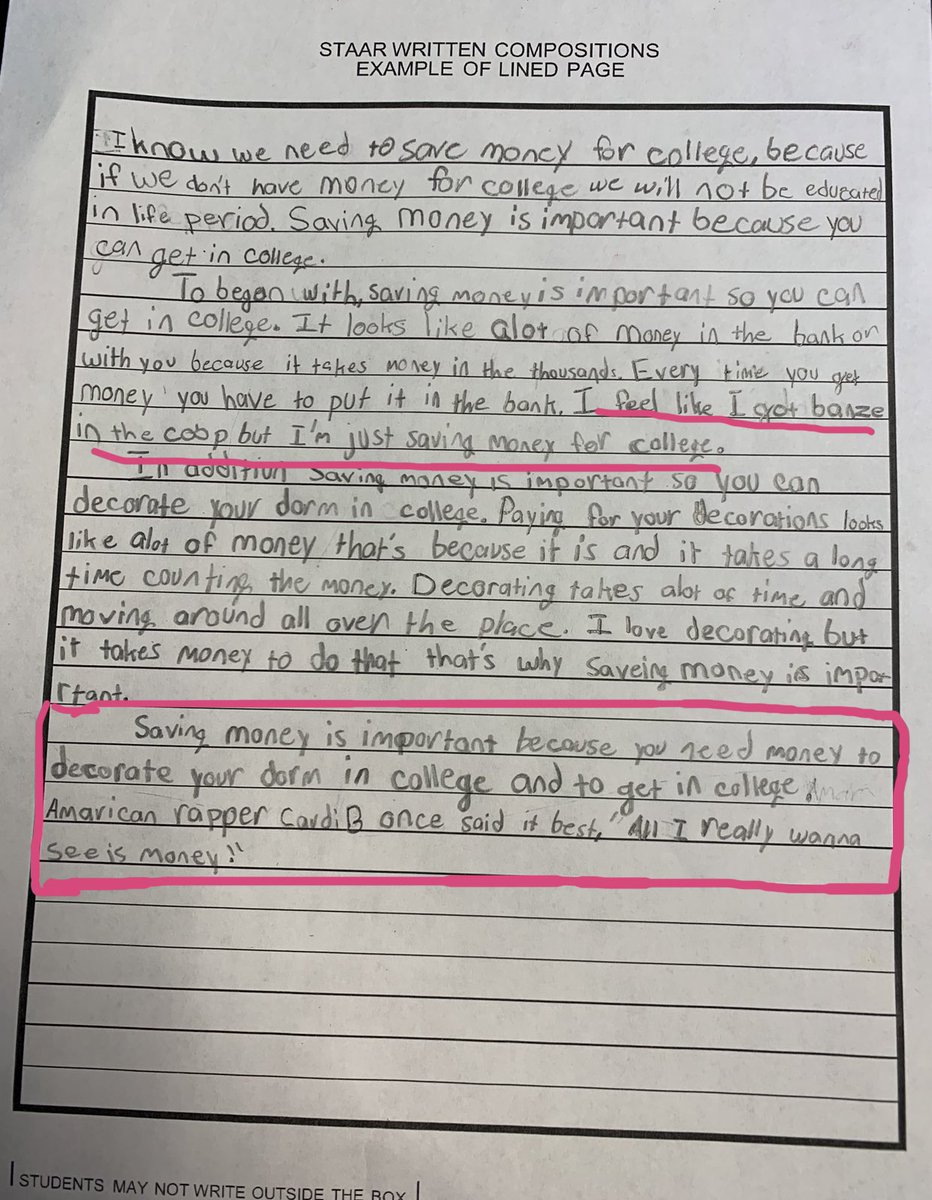 STAAR WRITTEN COMPOSITIONS
EXAMPLE OF LINED PAGE
I know we need to save money for college, because
if we don't have money for college we will not be educated
in life period. Saving money is important because you
can get in college.
To began with, saving money is important so you can
get in college. It looks like alot of money in the bank or
with you because it takes money in the thousands. Every time you get
money you have to put it in the bank. I feel like I got banze
in the coop but I'm just saving money for college.
In addition saving money is important so you can
decorate your dorm in college. Paying for your decorations looks
like alot of money that's because it is and it takes a long
time counting the money. Decorating takes alot of time and
moving around all over the place. I love decorating but
it takes money to do that that's why saveing money is impor-
rtant.
Saving money is important because you need money to
decorate your dorm in college and to get in college.
Amarican rapper Cardi B once said it best, "All I really wanna
see is money!"
STUDENTS MAY NOT WRITE OUTSIDE THE BOX